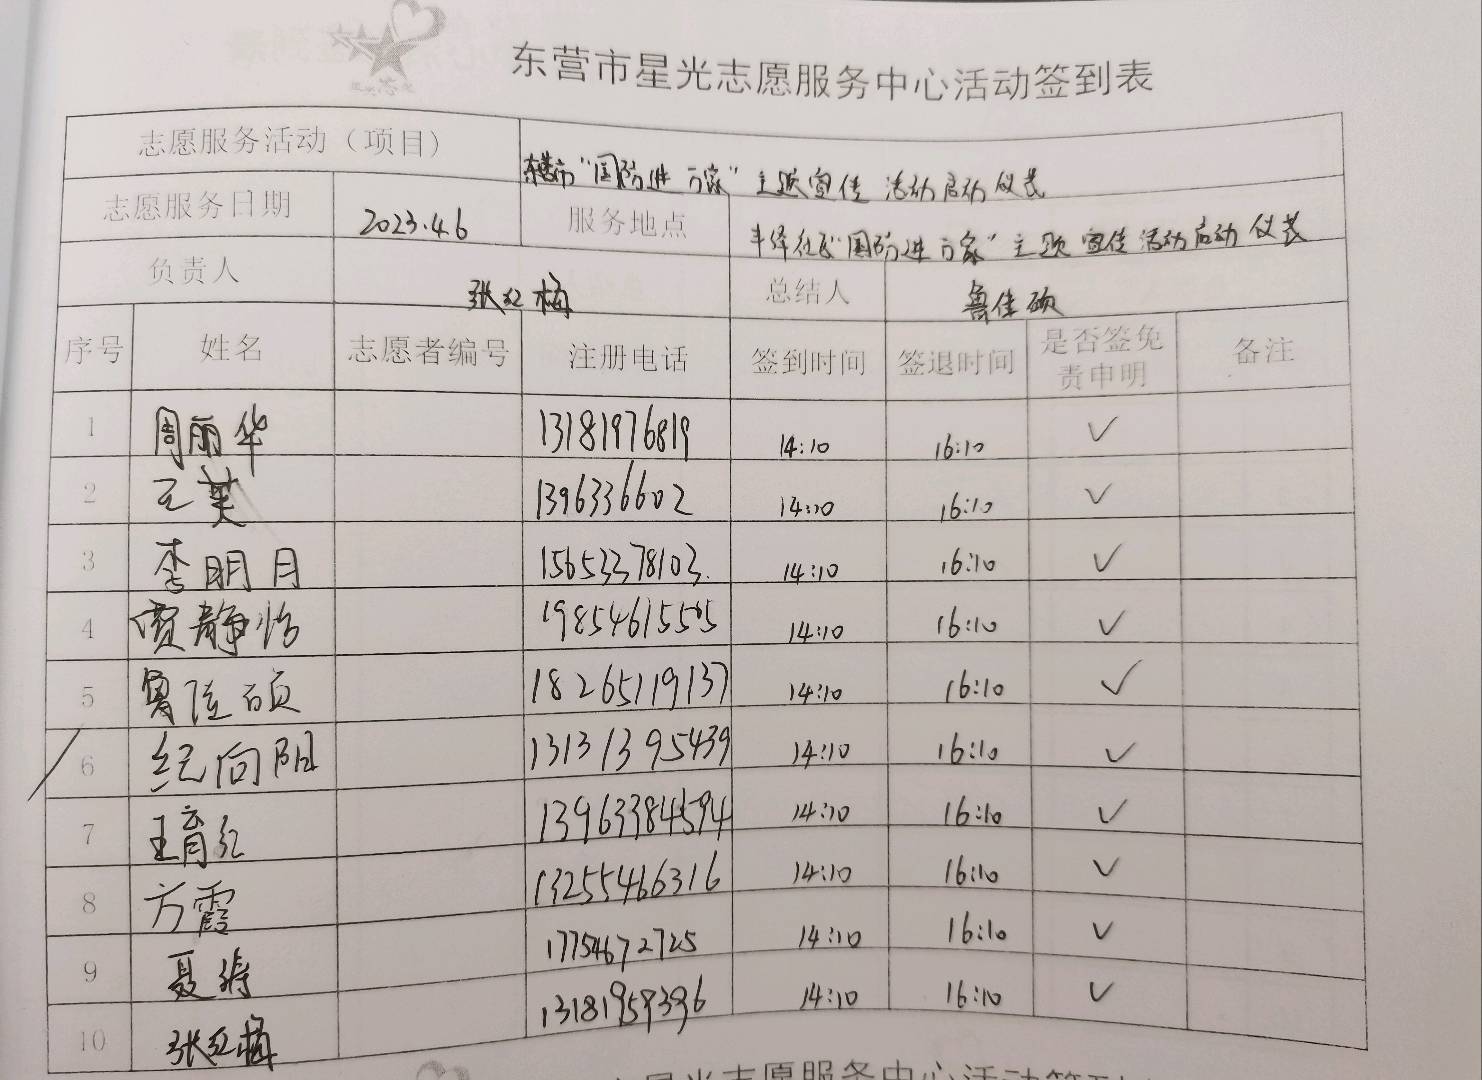 东营市星光志愿服务中心活动签到表
志愿服务活动（项目） 东营市“国防进万家”主题宣传活动启动仪式
志愿服务日期 2023.4.6 服务地点 丰泽社区“国防进万家”主题宣传活动启动仪式
负责人 张红梅 总结人 鲁佳硕
序号 姓名 志愿者编号 注册电话 签到时间 签退时间 是否签免责申明 备注
1 周丽华 13181976819 14:10 16:10 ✓
2 王芙 1396336602 14:10 16:10 ✓
3 李明月 15653378103 14:10 16:10 ✓
4 贾静怡 19854615505 14:10 16:10 ✓
5 鲁佳硕 18265119137 14:10 16:10 ✓
6 纪向阳 13131395439 14:10 16:10 ✓
7 王育红 13963384594 14:10 16:10 ✓
8 方霞 13255466316 14:10 16:10 ✓
9 聂涛 17754672725 14:10 16:10 ✓
10 张红梅 13181959396 14:10 16:10 ✓
星光志愿服务中心活动签到